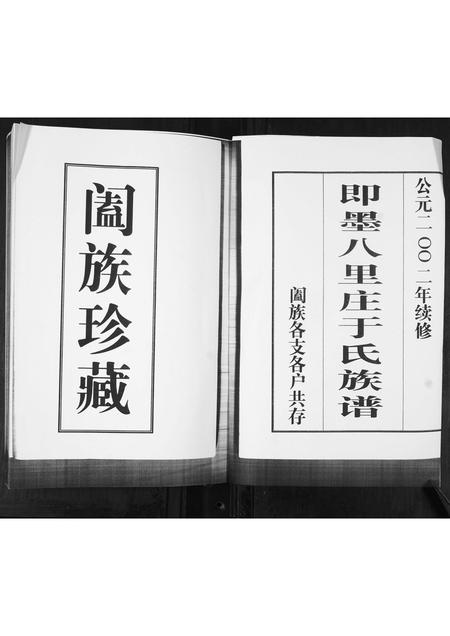 公元二〇〇二年续修
即墨八里庄于氏族谱
阖族各支各户共存
阖族珍藏